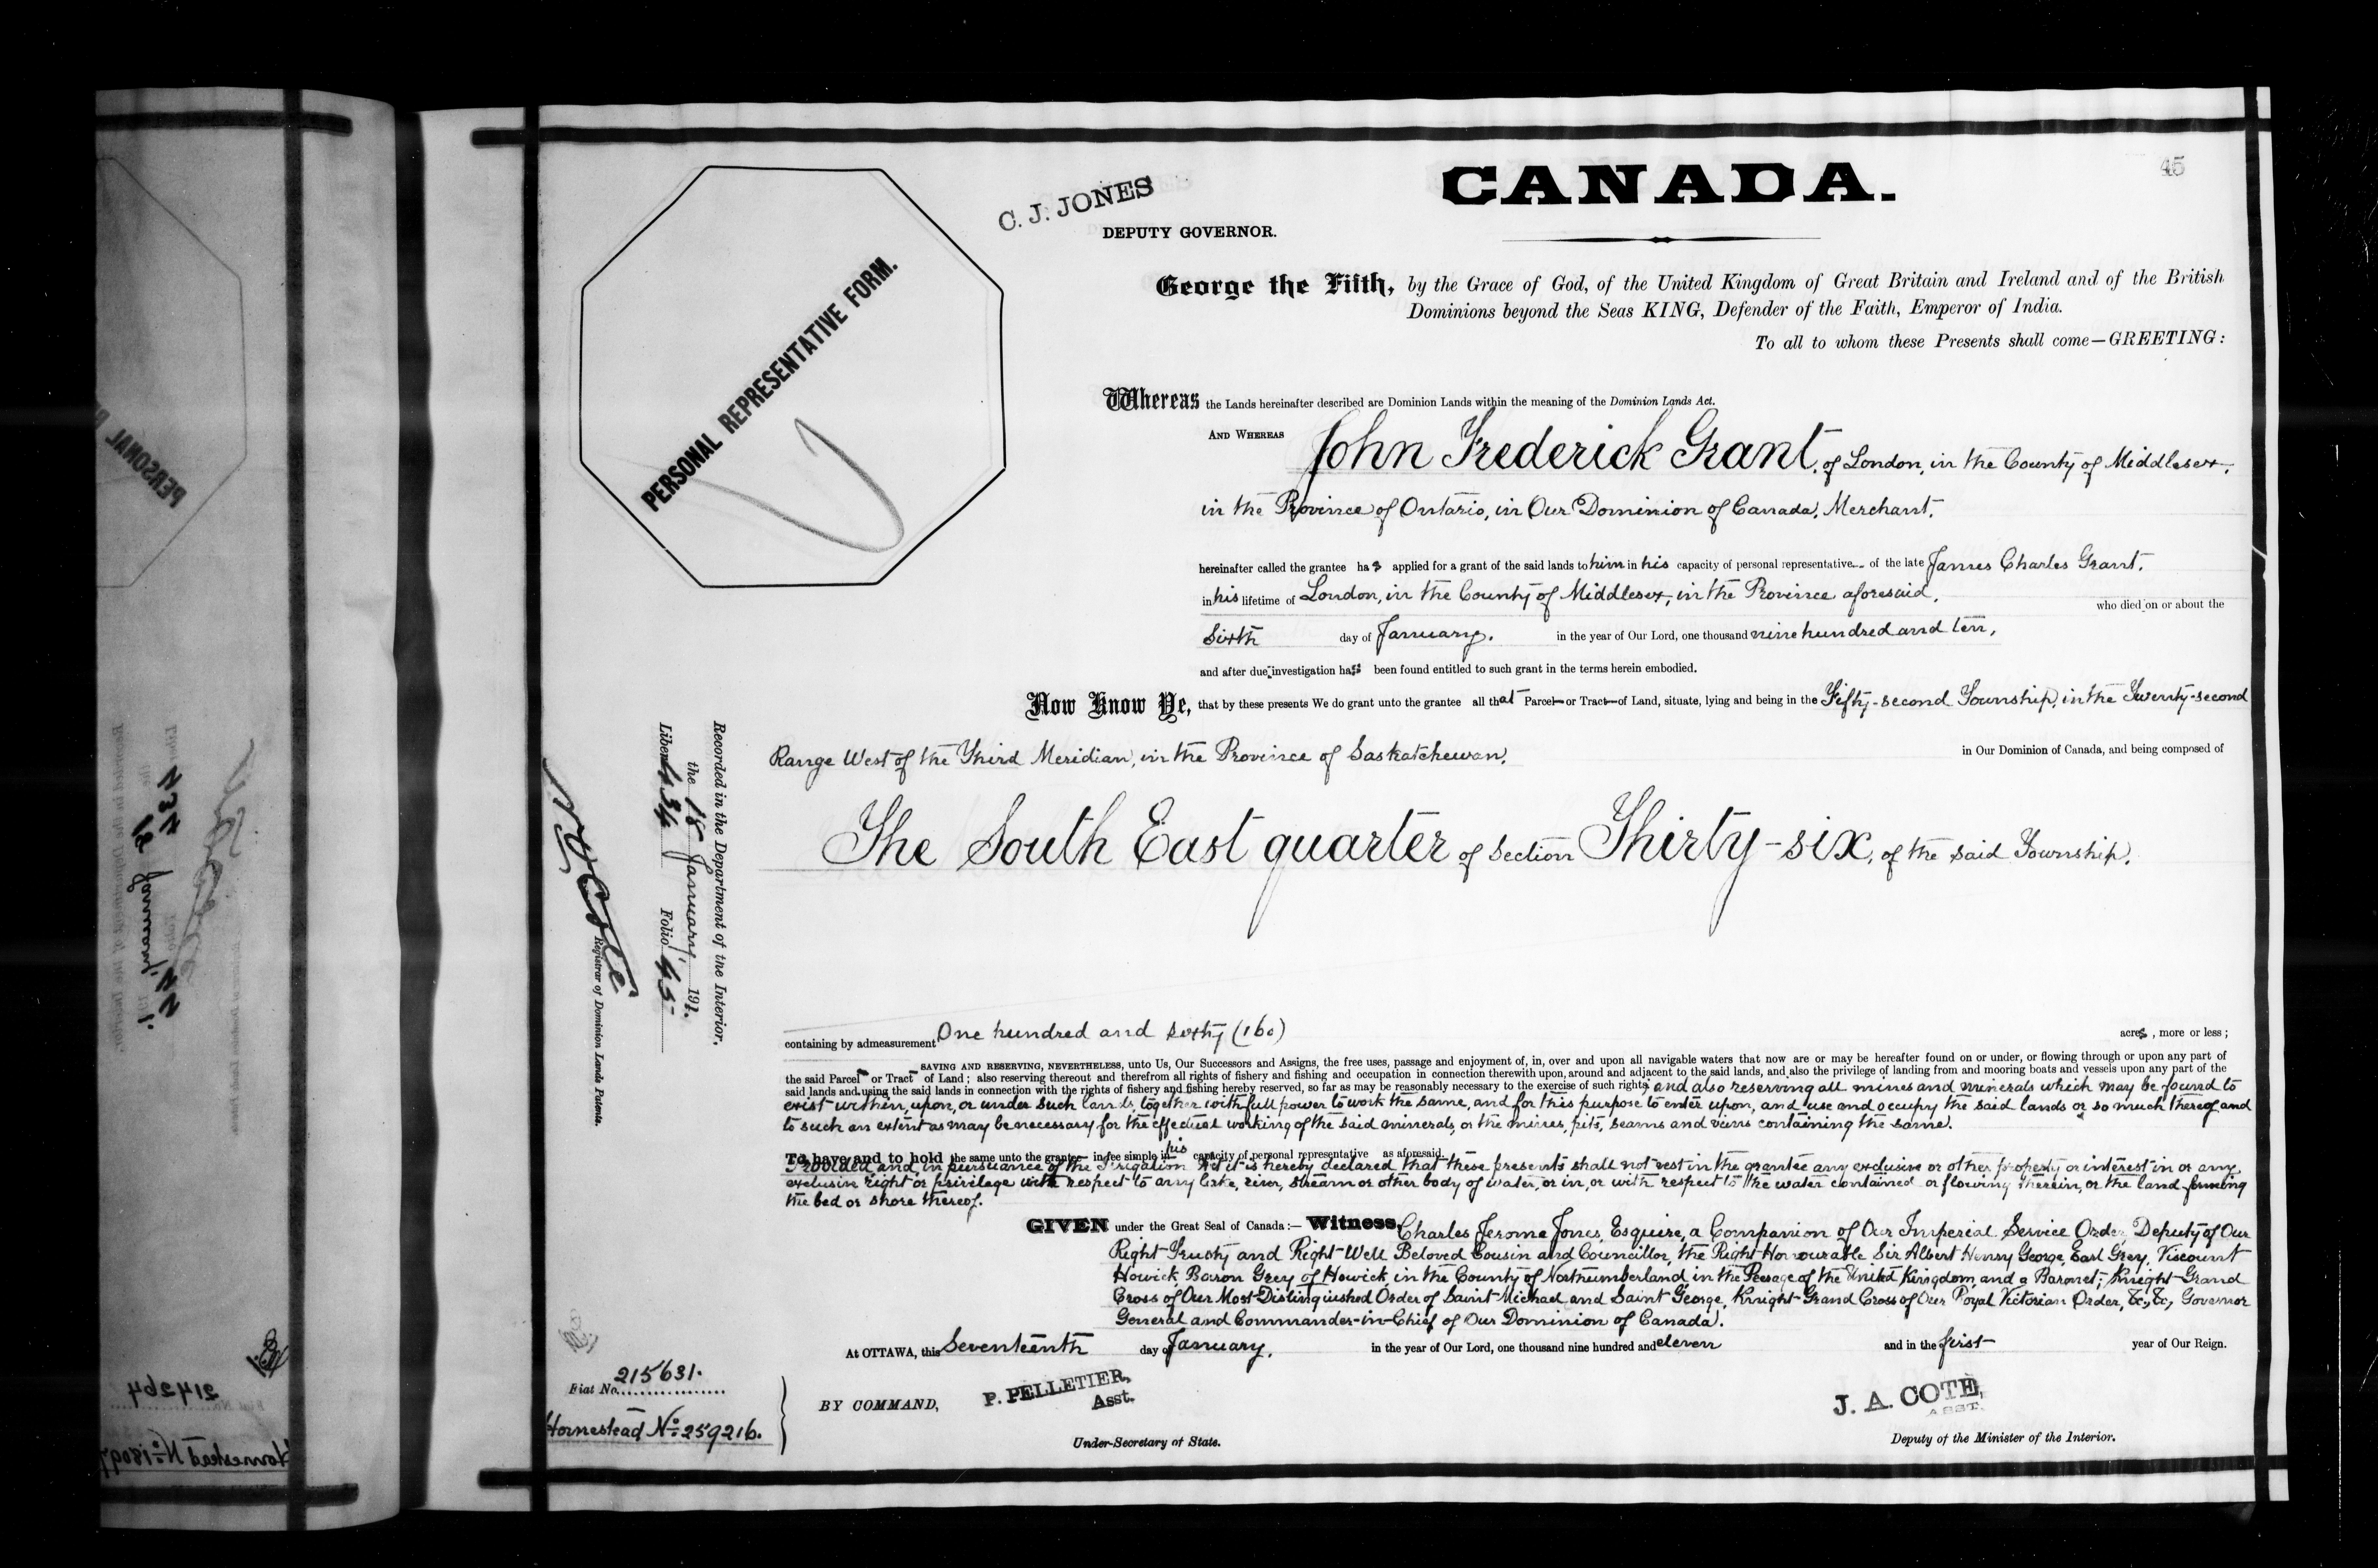 45
CANADA.
C. J. JONES
DEPUTY GOVERNOR.
PERSONAL REPRESENTATIVE FORM.
George the Fifth, by the Grace of God, of the United Kingdom of Great Britain and Ireland and of the British
Dominions beyond the Seas KING, Defender of the Faith, Emperor of India.
To all to whom these Presents shall come—GREETING:
Whereas the Lands hereinafter described are Dominion Lands within the meaning of the Dominion Lands Act.
AND WHEREAS John Frederick Grant, of London, in the County of Middlesex,
in the Province of Ontario, in Our Dominion of Canada, Merchant,
hereinafter called the grantee has applied for a grant of the said lands to him in his capacity of personal representative of the late James Charles Grant,
in his lifetime of London, in the County of Middlesex, in the Province aforesaid, who died on or about the
Sixth day of January, in the year of Our Lord, one thousand nine hundred and ten,
and after due investigation has been found entitled to such grant in the terms herein embodied.
Now Know Ye, that by these presents We do grant unto the grantee all that Parcel or Tract of Land, situate, lying and being in the Fifty-second Township, in the Twenty-second
Range West of the Third Meridian, in the Province of Saskatchewan, in Our Dominion of Canada, and being composed of
The South East quarter of Section Thirty-six, of the said Township,
containing by admeasurement One hundred and sixty (160) acres, more or less;
SAVING AND RESERVING, NEVERTHELESS, unto Us, Our Successors and Assigns, the free uses, passage and enjoyment of, in, over and upon all navigable waters that now are or may be hereafter found on or under, or flowing through or upon any part of
the said Parcel or Tract of Land; also reserving thereout and therefrom all rights of fishery and fishing and occupation in connection therewith upon, around and adjacent to the said lands, and also the privilege of landing from and mooring boats and vessels upon any part of the
said lands and using the said lands in connection with the rights of fishery and fishing hereby reserved, so far as may be reasonably necessary to the exercise of such rights; and also reserving all mines and minerals which may be found to
exist within, upon, or under such lands, together with full power to work the same, and for this purpose to enter upon, and use and occupy the said lands or so much thereof and
to such an extent as may be necessary for the effectual working of the said minerals, or the mines, pits, seams and veins containing the same.
To have and to hold the same unto the grantee in fee simple in his capacity of personal representative as aforesaid.
Provided and in pursuance of the Irrigation Act it is hereby declared that these presents shall not vest in the grantee any exclusive or other property or interest in or any
exclusive right or privilege with respect to any lake, river, stream or other body of water, or in, or with respect to the water contained or flowing therein, or the land forming
the bed or shore thereof.
GIVEN under the Great Seal of Canada:— Witness, Charles Jerome Jones, Esquire, a Companion of Our Imperial Service Order, Deputy of Our
Right Trusty and Right Well Beloved Cousin and Councillor, the Right Honourable Sir Albert Henry George, Earl Grey, Viscount
Howick, Baron Grey of Howick, in the County of Northumberland in the Peerage of the United Kingdom and a Baronet; Knight Grand
Cross of Our Most Distinguished Order of Saint Michael and Saint George, Knight Grand Cross of Our Royal Victorian Order, &c, &c, Governor
General and Commander-in-Chief of Our Dominion of Canada.
At OTTAWA, this Seventeenth day of January, in the year of Our Lord, one thousand nine hundred and eleven and in the first year of Our Reign.
BY COMMAND,
P. PELLETIER,
Asst.
Under-Secretary of State.
J. A. COTÉ,
ASST.
Deputy of the Minister of the Interior.
Recorded in the Department of the Interior.
the 18 January 1911.
Liber 434 Folio 45
N O Coté
Registrar of Dominion Lands Patents.
Fiat No. 215631.
Homestead No: 259216.
PERSONAL
214264